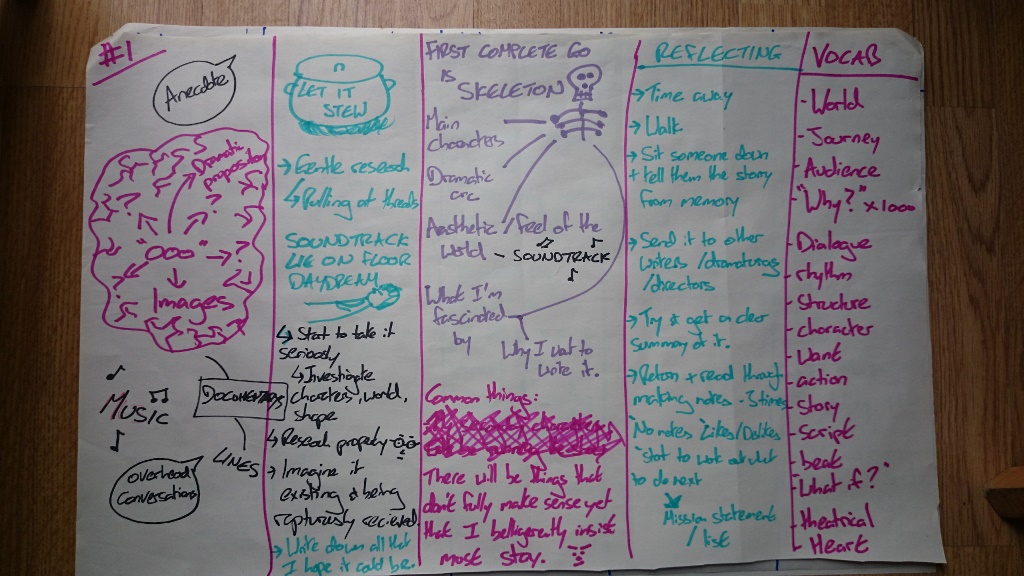 #1
Anecdote
Dramatic
proposition
"OOO"
Images
MUSIC
DOCUMENTARIES
LINES
overheard
Conversations
LET IT
STEW
→ Gentle research
↳ Pulling at threads
SOUNDTRACK
LIE ON FLOOR
DAYDREAM
↳ Start to take it
seriously
↳ Investigate
characters, world,
shape
↳ Research properly
→ Imagine it
existing & being
rapturously recieved
→ Write down all that
I hope it could be.
FIRST COMPLETE GO
IS
SKELETON
Main
characters
Dramatic
arc
Aesthetic / Feel of the
world
- SOUNDTRACK
What I'm
fascinated
by
Why I want to
write it.
Common things:
There will be things that
don't fully make sense yet
that I belligerently insist
must stay.
REFLECTING
→ Time away
→ Walk
→ Sit someone down
+ tell them the story
from memory
→ Send it to other
writers / dramaturgs
/directors
→ Try & get a clear
summary of it.
→ Return + read through
making notes - 3 times
No notes "Likes/Dislikes
"start to work out what
to do next
Mission statement
/ list
VOCAB
- World
- Journey
- Audience
- "Why?" x 1000
- Dialogue
- rhythm
- Structure
- character
- Want
- action
- Story
- Script
- beat
- "What if?"
- theatrical
- Heart